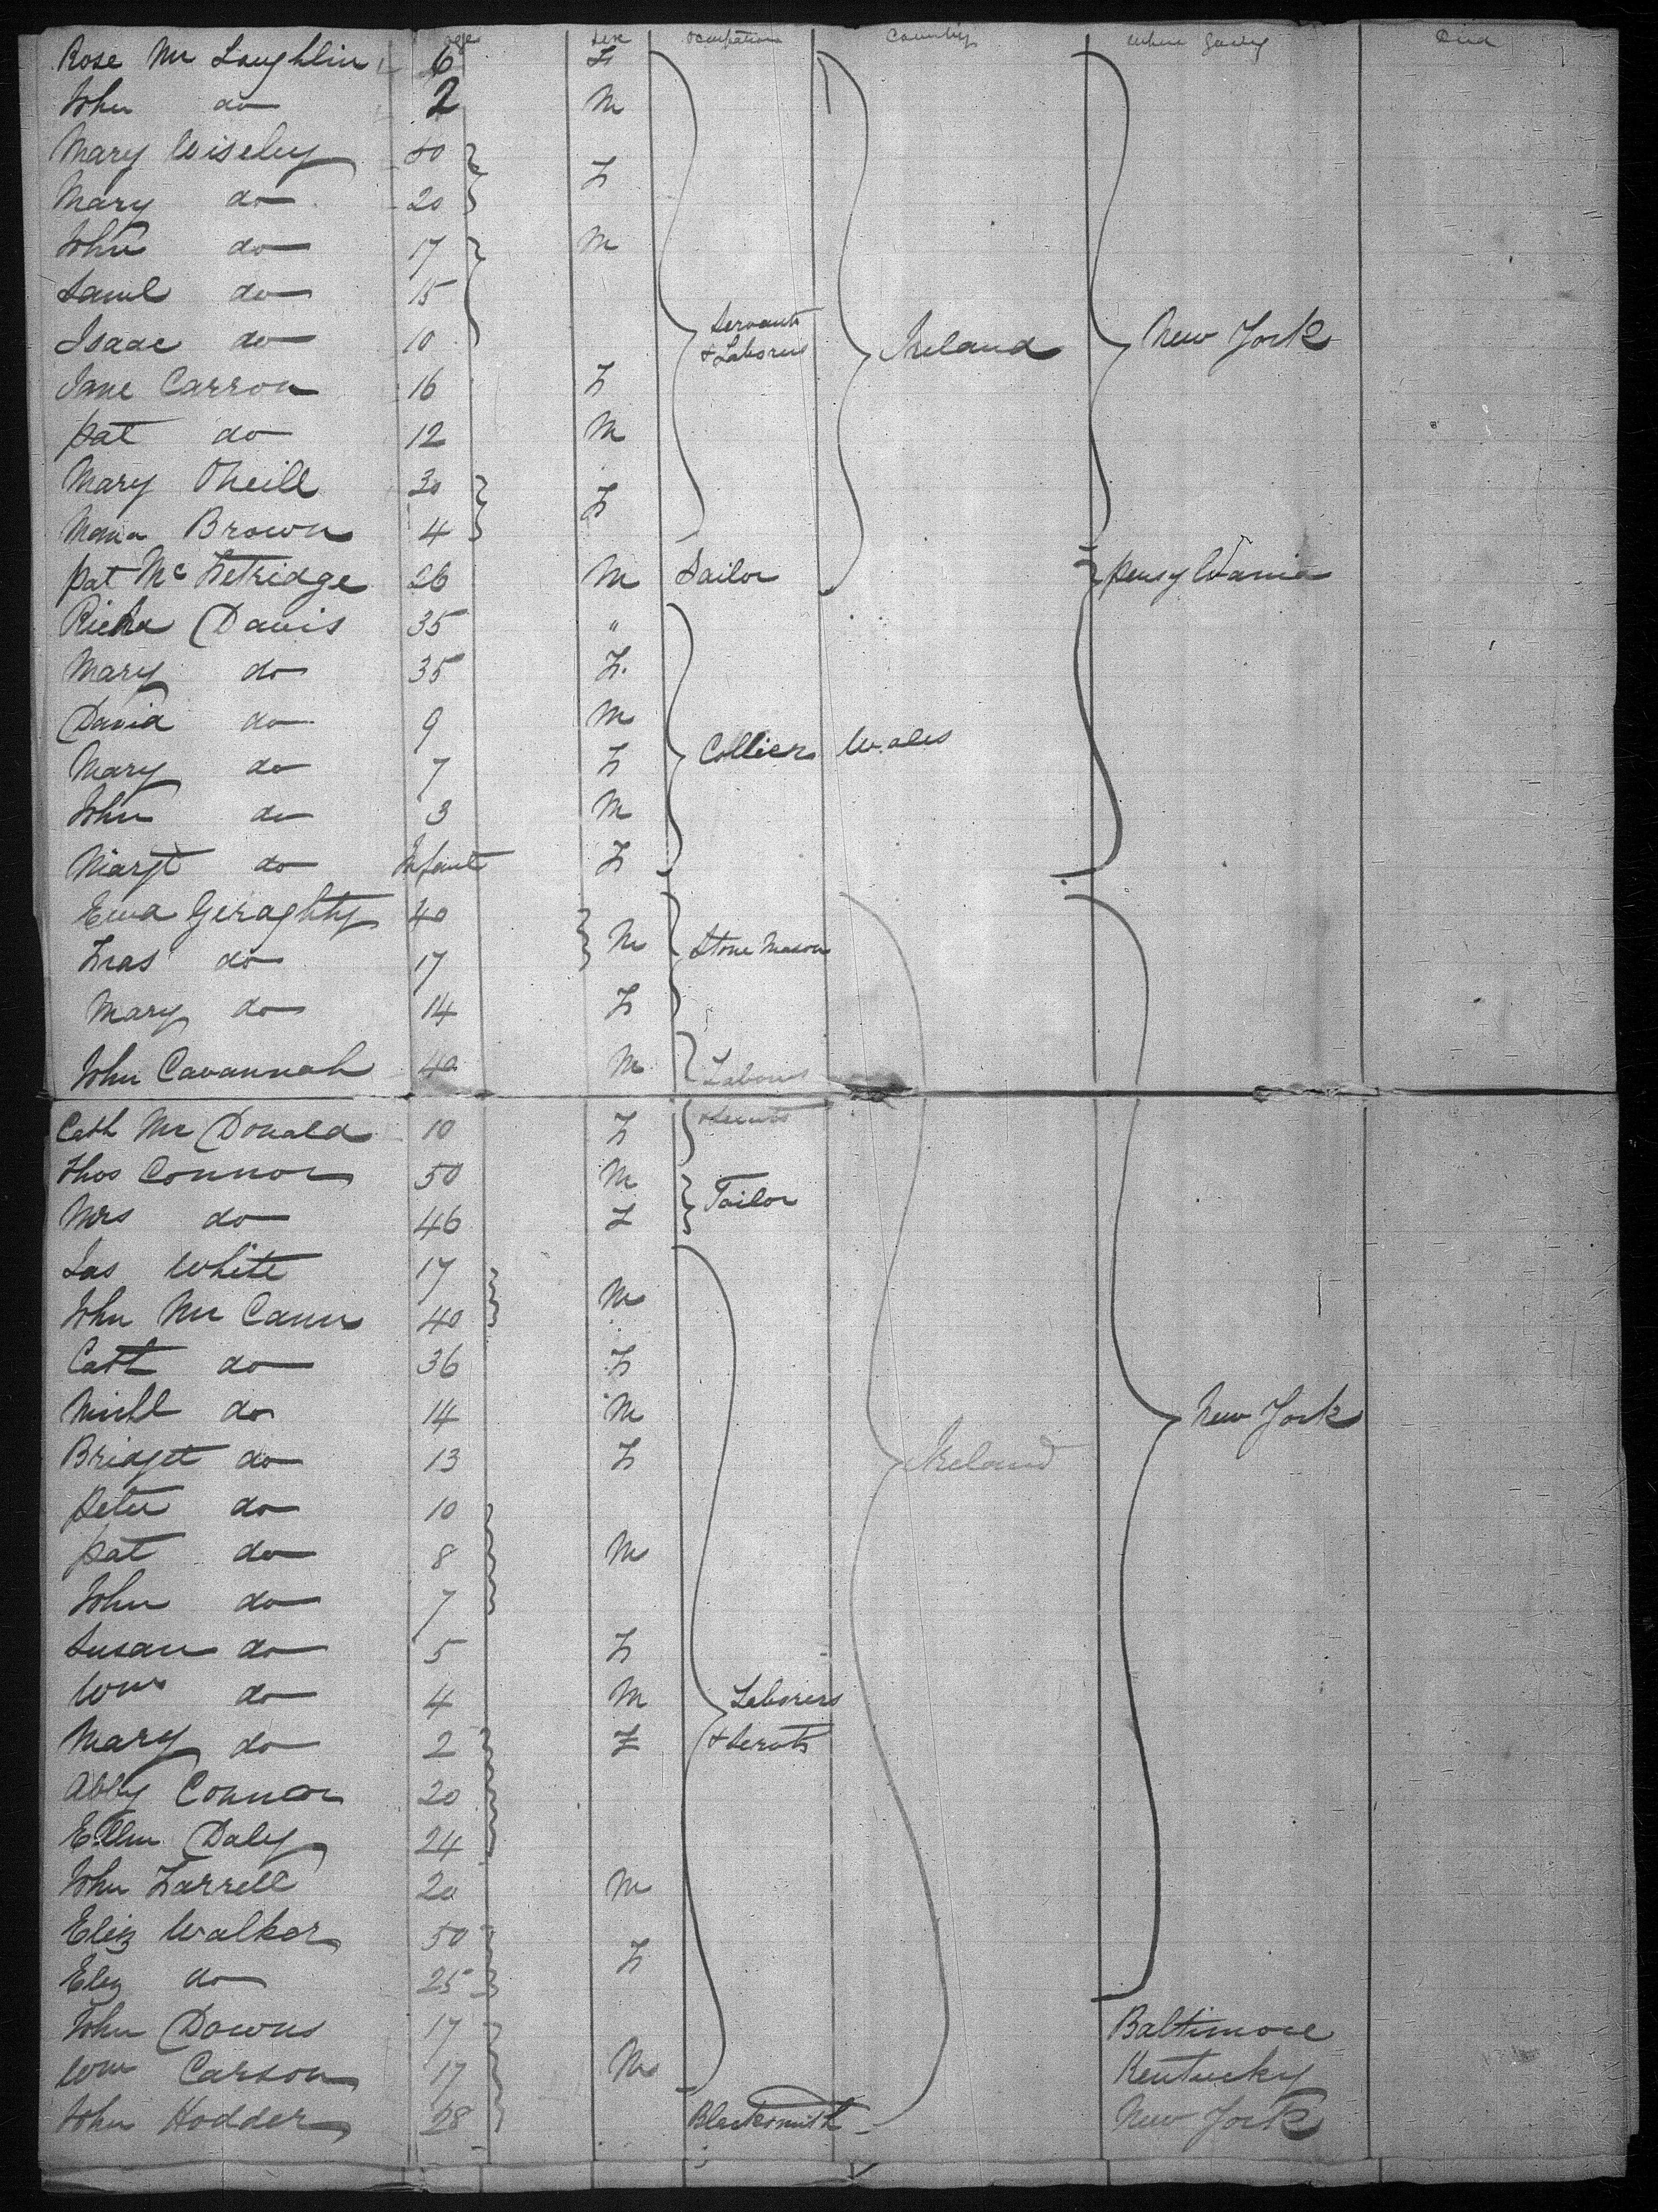 age sex occupation Country where going Died
Rose Mc Loughlin 6 F
John do 2 M
Mary Wiseley 50
F
Mary do 20
John do 17 M
Saml do 15
Isaac do 10 Servants & Laborers Ireland New York
Jane Carron 16 F
Pat do 12 M
Mary ONeill 30
F
Maria Brown 4
Pat Mc Fetridge 26 M Sailor Pensylvania
Richd Davis 35 "
Mary do 35 F.
David do 9 M
Mary do 7 F Colliers Wales
John do 3 M
Margt do Infant F
Geraghty 40
M Stone Mason
Fras do 17
Mary do 14 F
John Cavannah 40 M Laborers
Cath Mc Donald 10 F
Thos Connor 50 M
Tailor
Mrs do 46 F
Jas White 17
M
John Mc Cann 40
Cath do 36 F
Michl do 14 M New York
Bridget do 13 F Ireland
Peter do 10
Pat do 8 M
John do 7
Susan do 5 F
Wm do 4 M Laborers
Mary do 2 F & Servts
Abby Connor 20
Ellen Daly 24
John Farrell 20 M
Eliz Walker 50
F
Eliz do 25
John Downs 17 Baltimore
Wm Carson 17 M Kentucky
John Hodder 28 Blacksmith New York